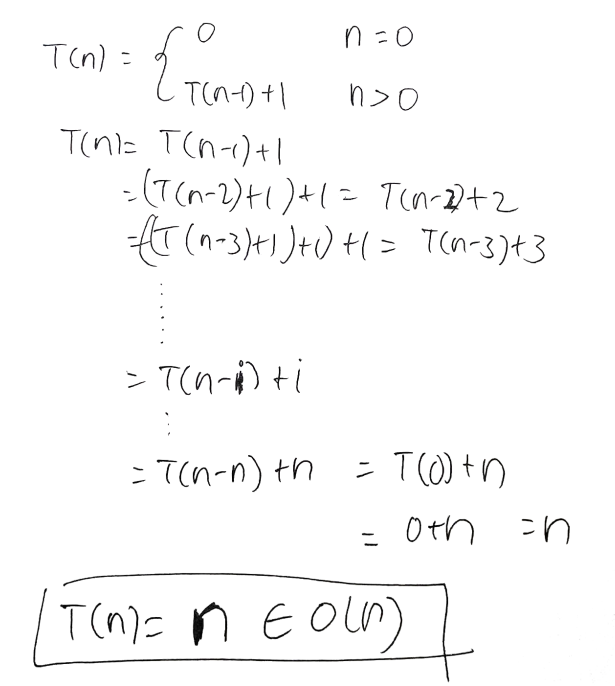 T(n) = { 0 n = 0
T(n-1)+1 n > 0
T(n) = T(n-1)+1
= (T(n-2)+1)+1 = T(n-2)+2
= ((T(n-3)+1)+1)+1 = T(n-3)+3
⋮
= T(n-i)+i
⋮
= T(n-n)+n = T(0)+n
= 0+n = n
T(n) = n ∈ O(n)